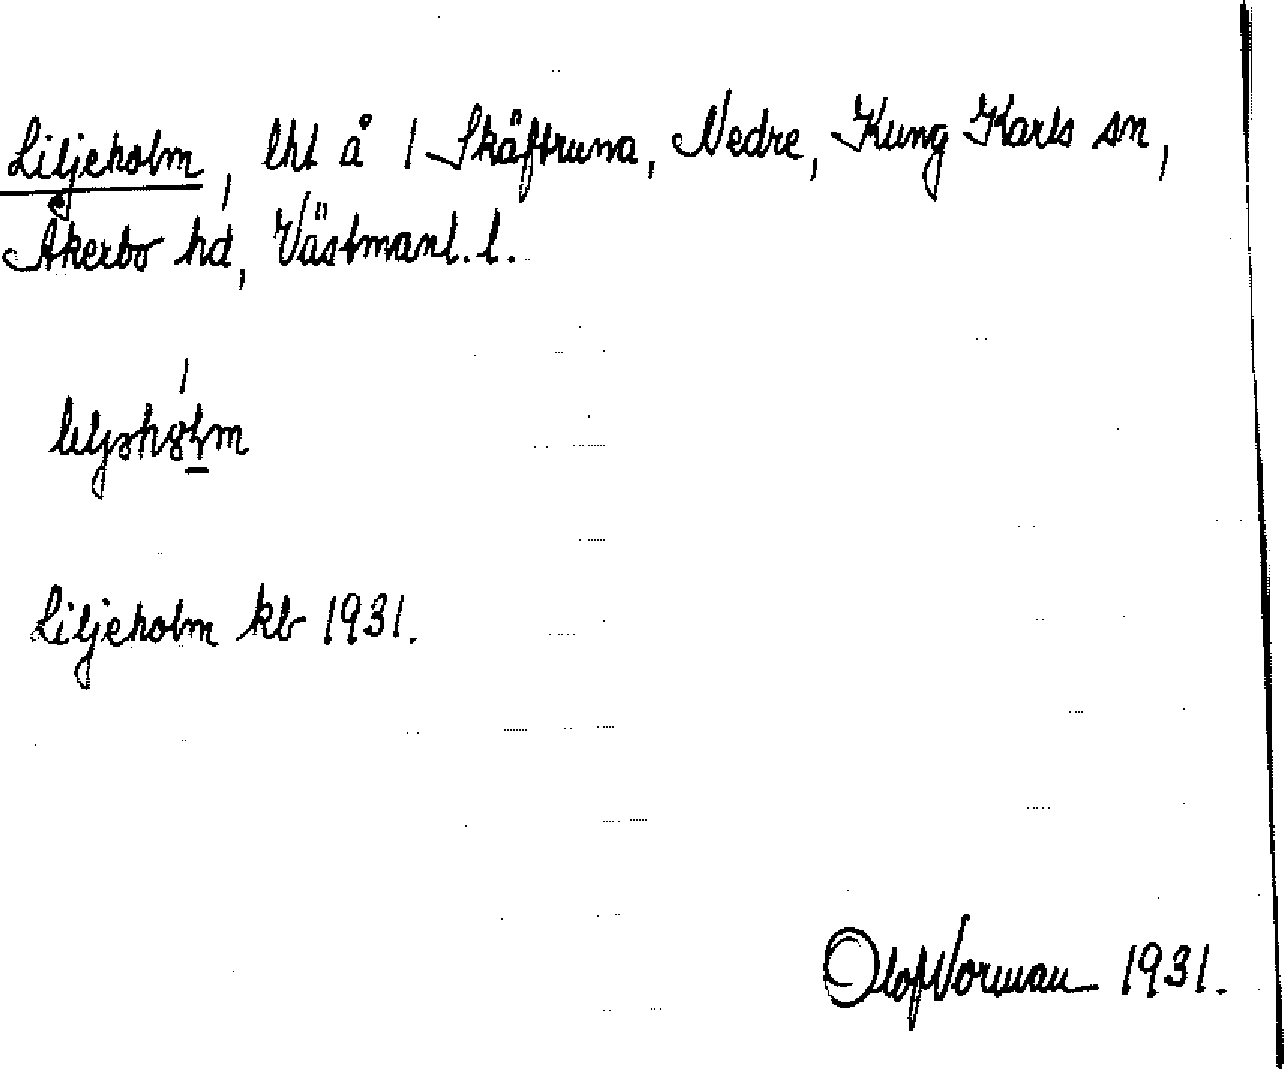 Liljeholm, lht å 1 Skäftruna, Nedre, Kung Karls sn,
Åkerbo hd, Västmanl. l.
Liljeholm kb 1931.
Olof Norman 1931.